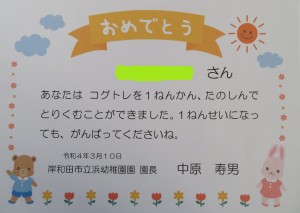 おめでとう
さん
あなたは コグトレを1ねんかん、たのしんで
とりくむことができました。1ねんせいになっ
ても、がんばってくださいね。
令和4年3月10日
岸和田市立浜幼稚園園 園長 中原 寿男